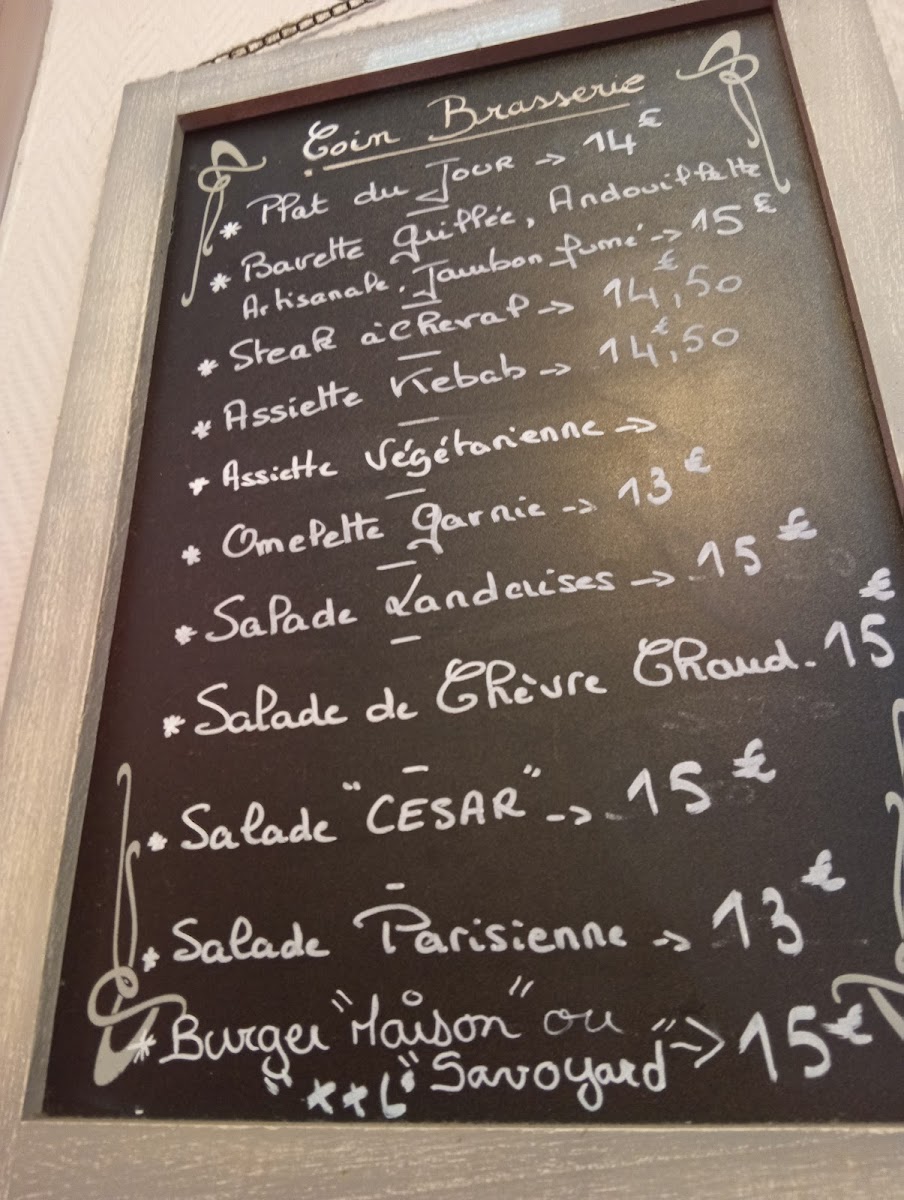 Coin Brasserie
* Plat du Jour -> 14€
* Bavette grillée, Andouillette
Artisanale, Jambon fumé -> 15€
* Steak à cheval -> 14€,50
* Assiette Kebab -> 14€,50
* Assiette Végétarienne ->
* Omelette garnie -> 13€
* Salade Landaises -> 15€
* Salade de Chèvre Chaud. 15€
* Salade "CÉSAR" -> 15€
* Salade Parisienne -> 13€
* Burger "Maison" ou
"XXL" Savoyard" -> 15€